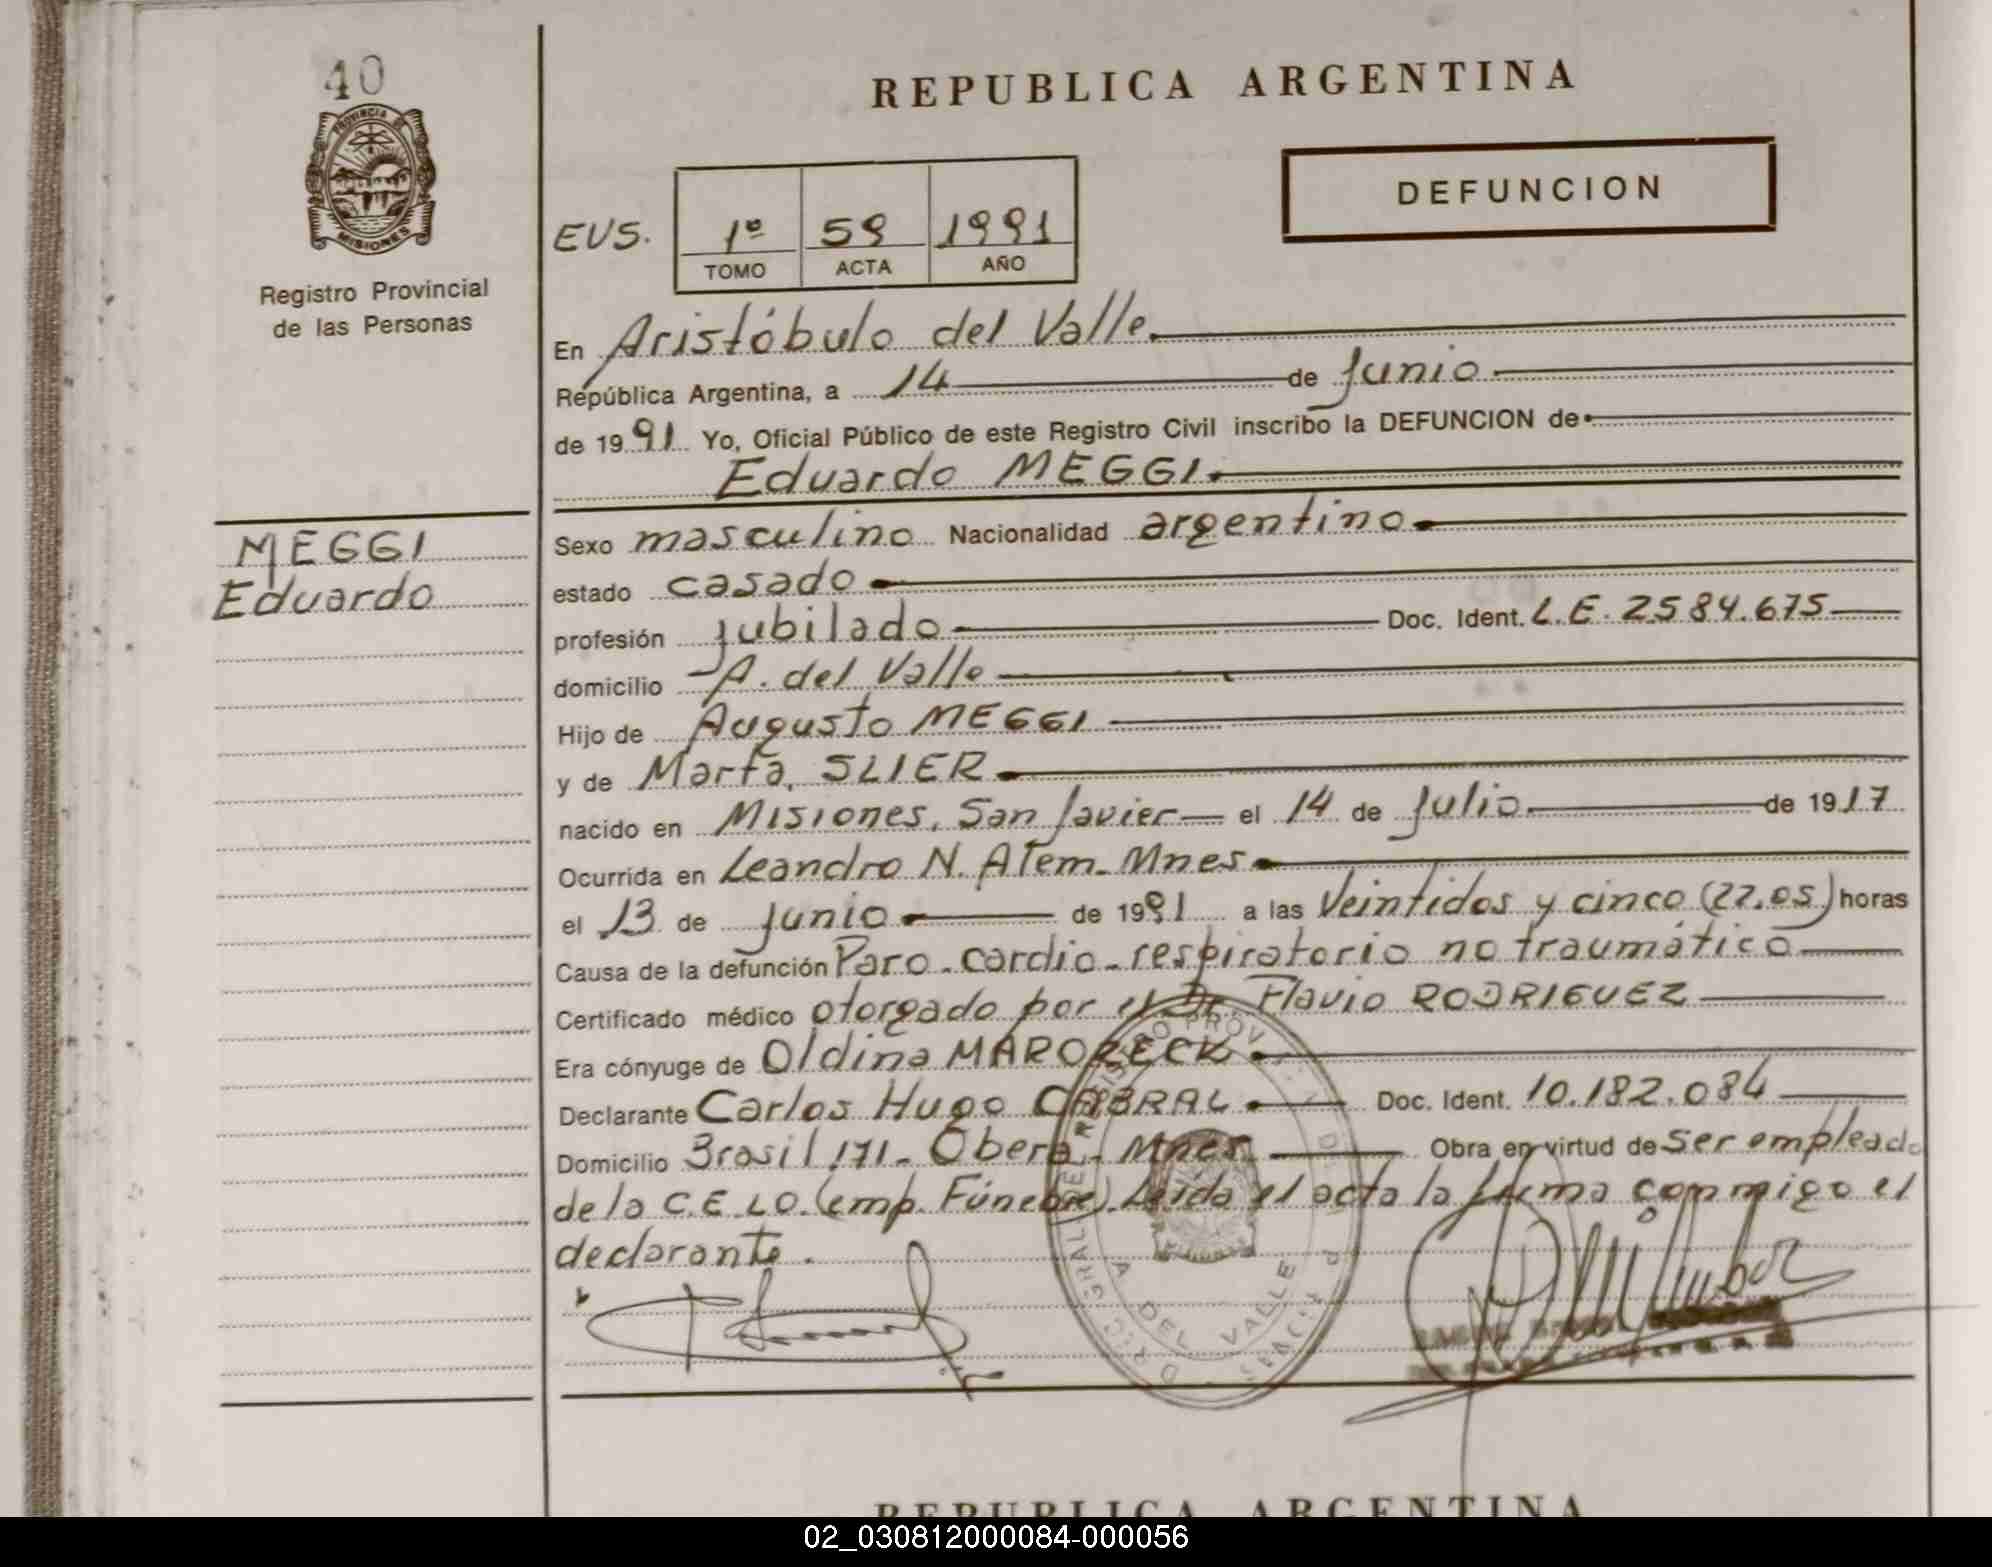 40
PROVINCIA DE
MISIONES
Registro Provincial
de las Personas
REPUBLICA ARGENTINA
DEFUNCION
EUS.
1º 59 1991
TOMO ACTA AÑO
En Aristóbulo del Valle
República Argentina, a 14 de Junio
de 1991 Yo, Oficial Público de este Registro Civil inscribo la DEFUNCION de
Eduardo MEGGI
MEGGI
Eduardo
Sexo masculino Nacionalidad argentino
estado casado
profesión jubilado Doc. Ident. L.E. 2584.675
domicilio A. del Valle
Hijo de Augusto MEGGI
y de Marta, SLIER
nacido en Misiones, San Javier el 14 de Julio de 1917
Ocurrida en Leandro N. Alem. Mnes
el 13 de Junio de 1991 a las Veintidos y cinco (22.05) horas
Causa de la defunción Paro-cardio-respiratorio no traumático
Certificado médico otorgado por el Dr. Flavio RODRIGUEZ
Era cónyuge de Oldina MAROZECK
Declarante Carlos Hugo CABRAL Doc. Ident. 10.182.084
Domicilio Brasil 171- Oberá- Mnes Obra en virtud de ser empleado
de la C.E.LO.(emp. Fúnebre). Leida el acta la firma conmigo el
declarante.
A DEL VALLE
REPUBLICA ARGENTINA
02_030812000084-000056